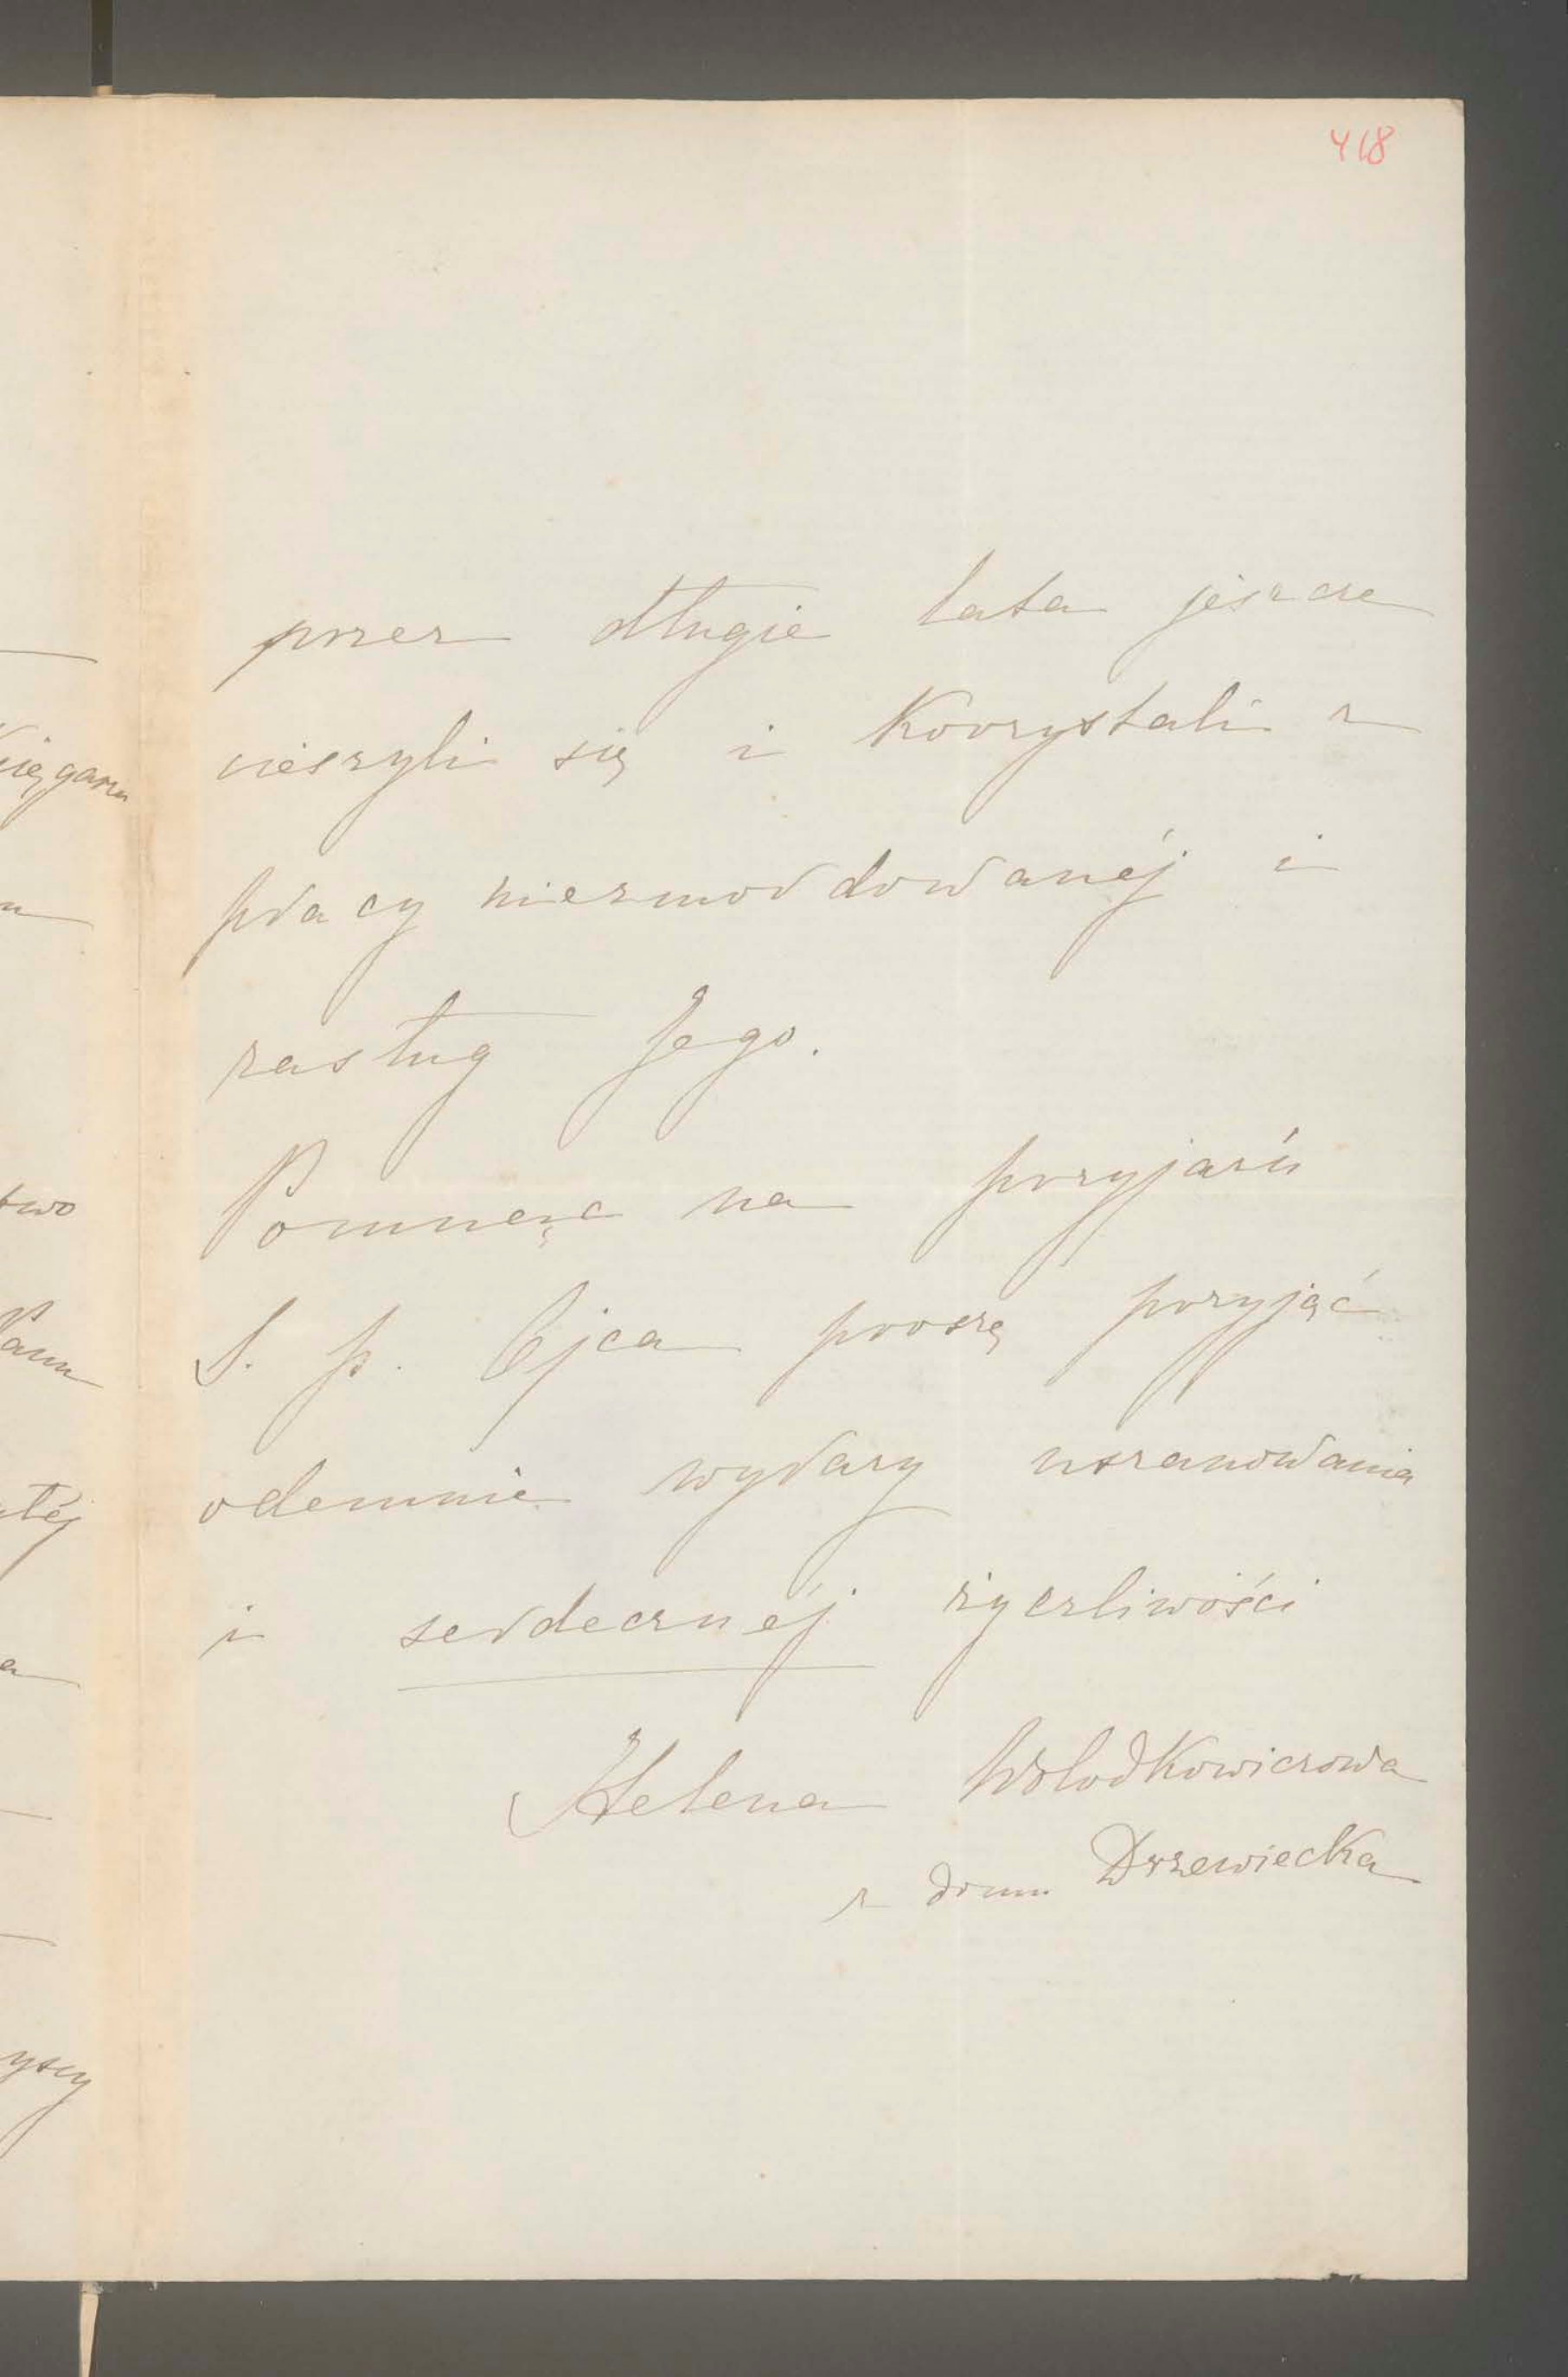 418
przez długie lata jeszcze
cieszyli się i korzystali z
pracy niezmordowanéj i
zasług Jego.
Pomnąc na przyjaźń
S. p. Ojca proszę przyjąć
odemnie wyrazy uszanowania
i serdecznéj życzliwości
Helena Wołodkowiczowa
z domu Drzewiecka